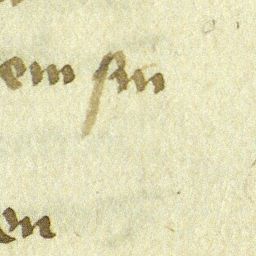 em ſin
en